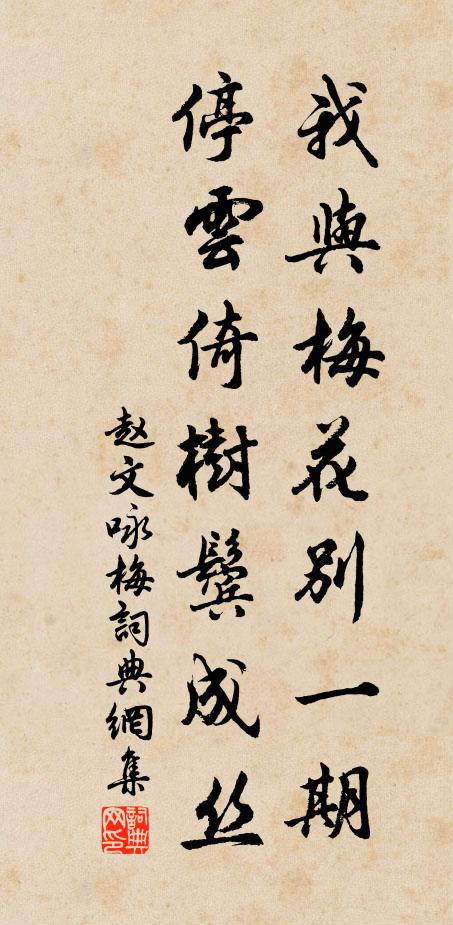 我與梅花别一期
停雲倚樹鬓成丝
赵文咏梅詞典網集
詞典网印